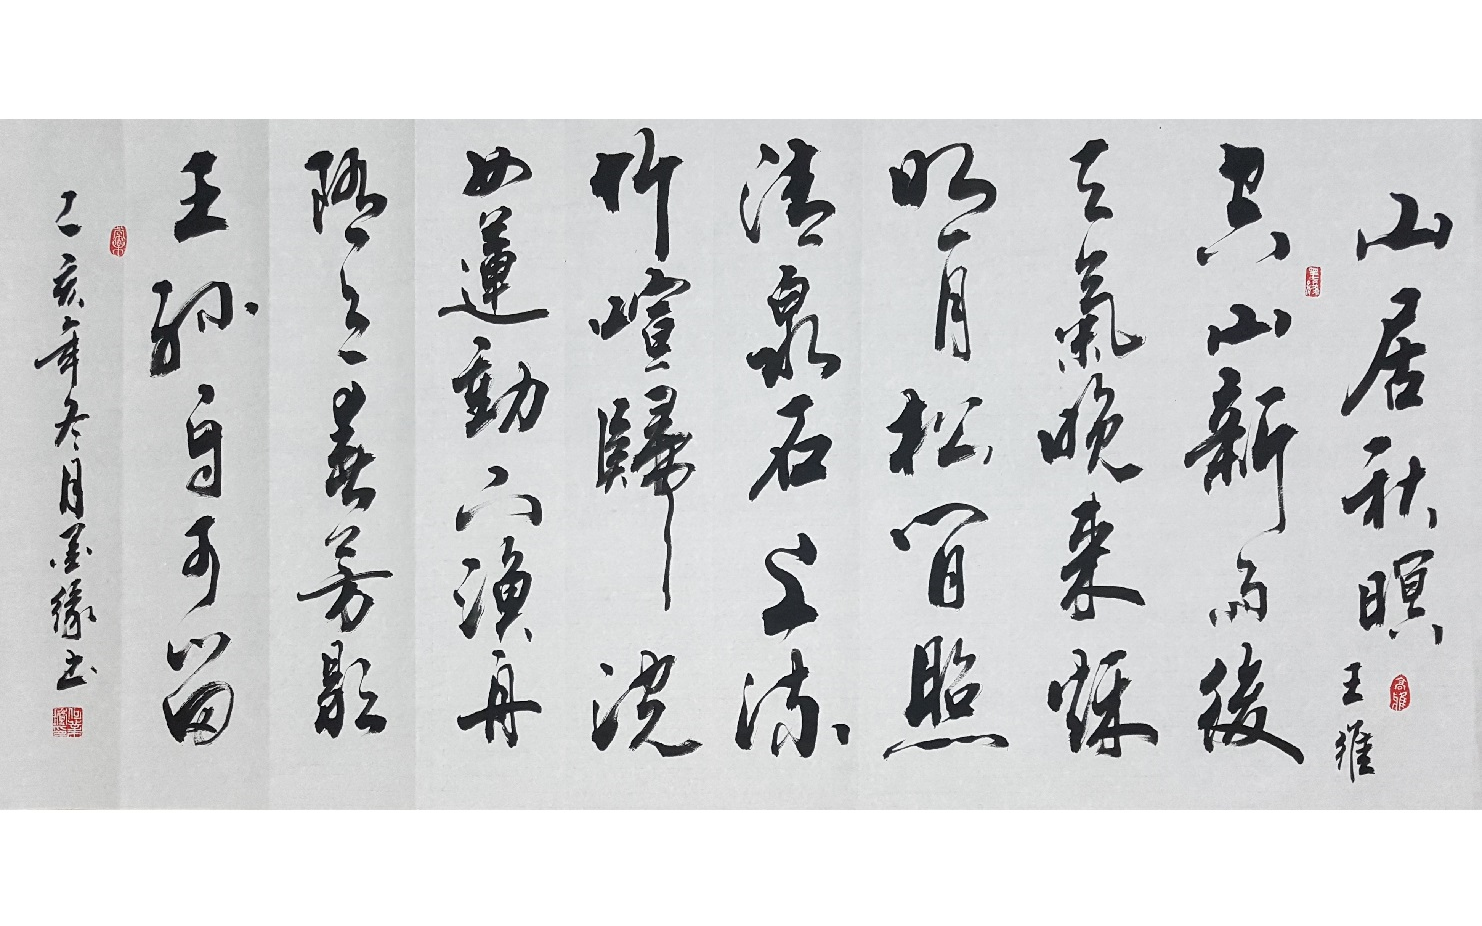 山居秋暝
王維
空山新雨後
天氣晚來秋
明月松間照
清泉石上流
竹喧歸浣
女蓮動下漁舟
隨意春芳歇
王孫自可留
己亥年冬月墨緣书